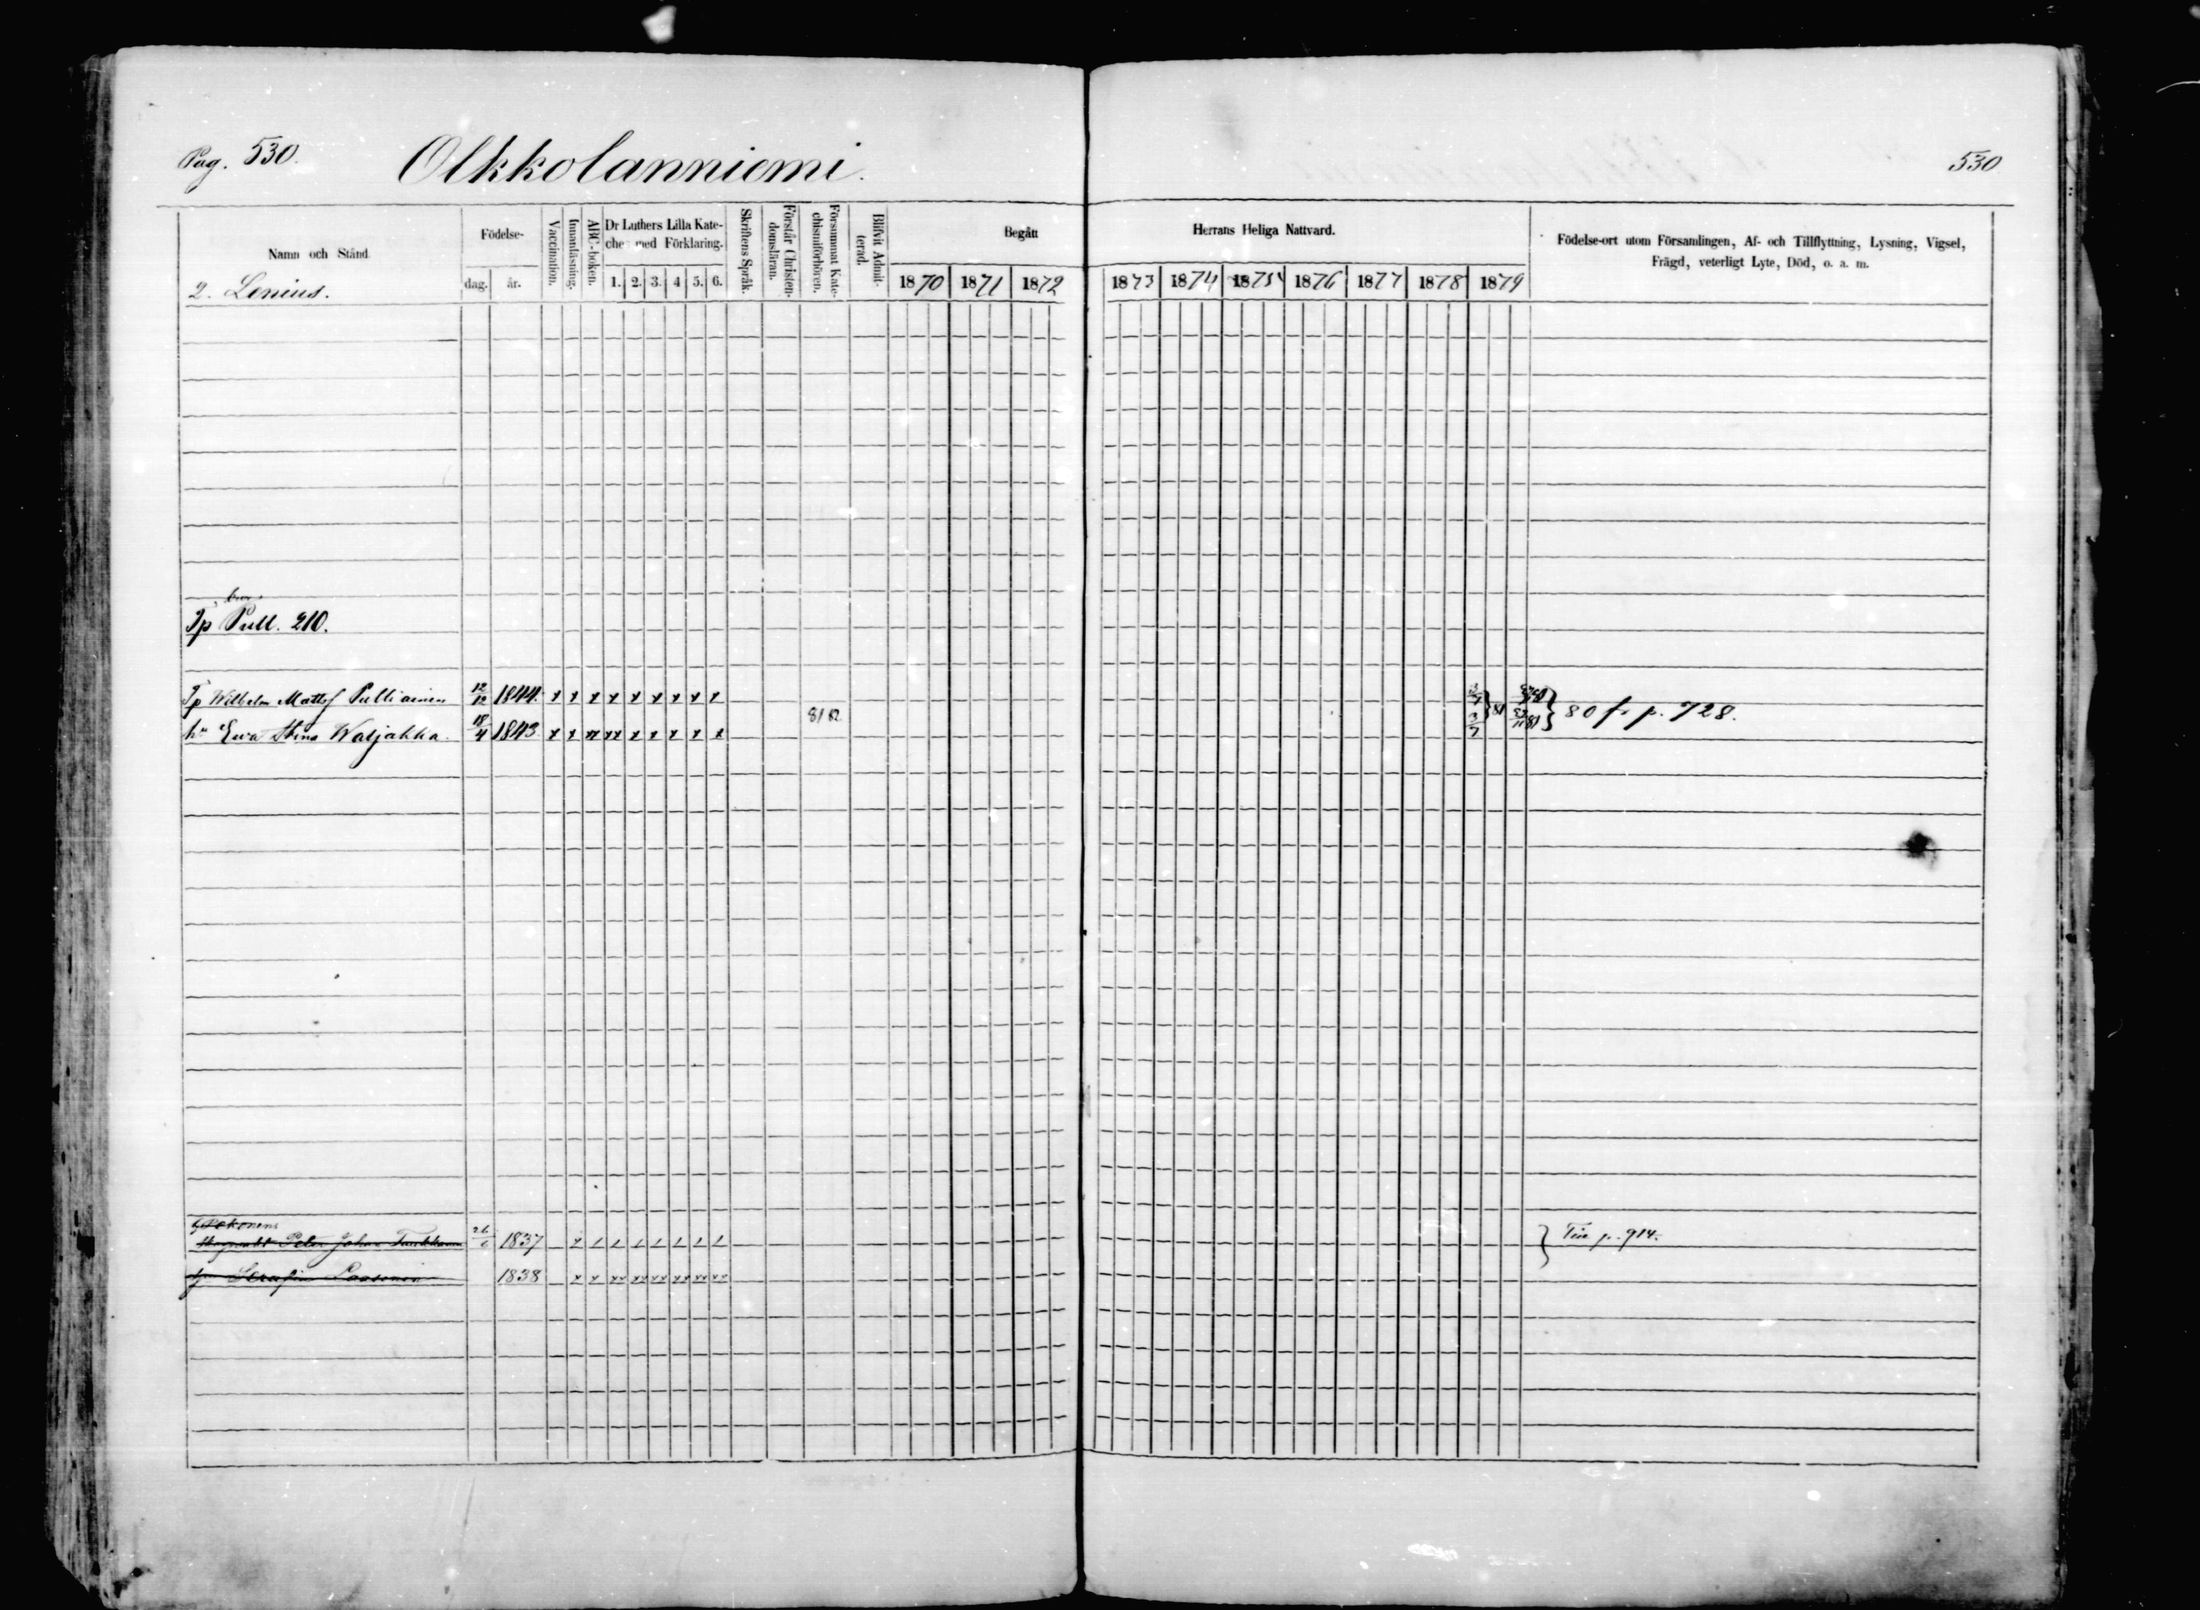 Pag. 530. Olkkolanniemi. 530
Namn och Stånd.
Födelse-
dag. år.
Vaccination.
Innanläsning.
ABC-boken.
Dr Luthers Lilla Kate-
ches med Förklaring.
1. 2. 3. 4 5. 6.
Skriftens Språk.
Förstår Christen-
domsläran.
Försummat Kate-
chismiförhören.
Blifvit Admit-
terad.
Begått Herrans Heliga Nattvard.
1870 1871 1872 1873 1874 1875 1876 1877 1878 1879
Födelse-ort utom Församlingen, Af- och Tillflyttning, Lysning, Vigsel,
Frägd, veterligt Lyte, Död, o. a. m.
2. Lenius.
Tp Pull. 210.
Tp Wilhelm Matts Pulliainen 12/12 1844. x x x x x x x x x
81 82 81 80 fr p. 728.
hu Ewa Stina Watjakka. 18/4 1843. x x xx xx x x x x x
Peter Johan 26/6 1837 Tir p. 914.
Serafia Laasonen 1838 x x xx xx xx xx xx xx